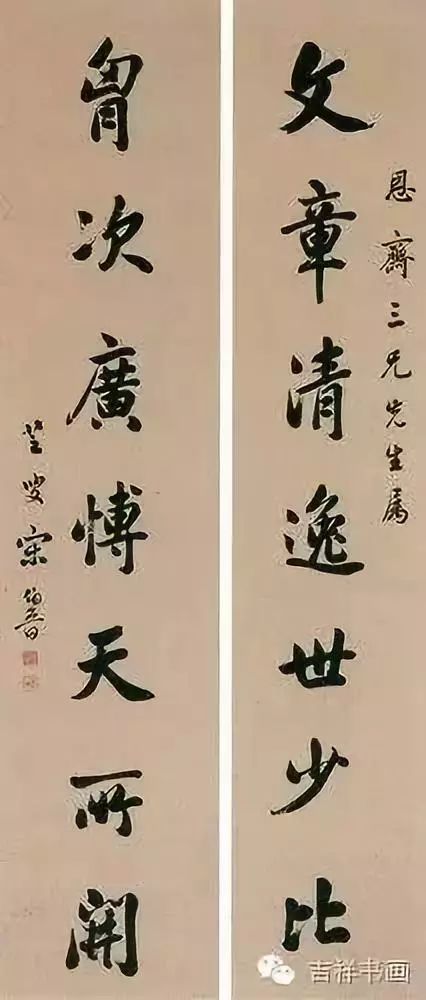 恩齋三兄先生属
文章清逸世少比
胷次廣愽天所開
芝叟宋伯魯
吉祥书画